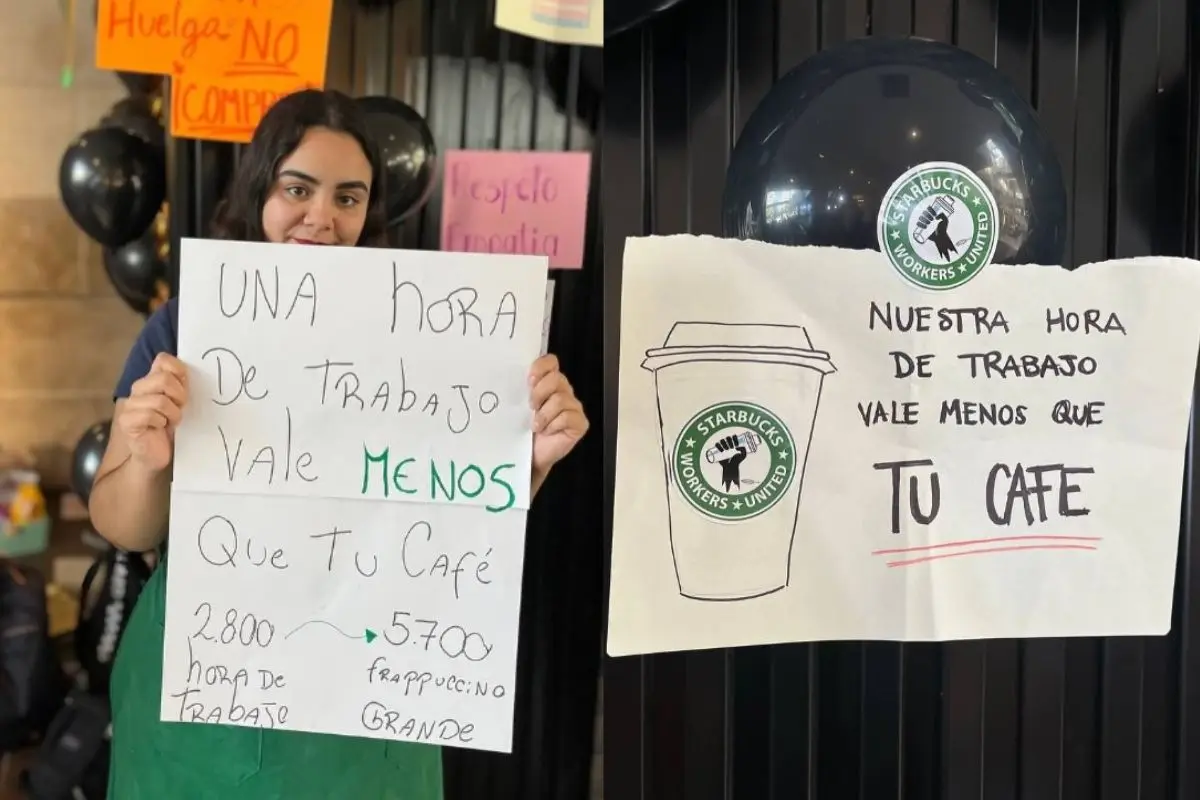 Huelga NO
¡COMPRE
Respeto
Empatia
UNA hORA
De TRAbAJO
VAle MENOS
Que Tu CAfé
2.800 5.700
hORA De fRAPPUCCiNO
TRAbAJo GRANDe
STARBUCKS
WORKERS UNITED
NUESTRA HORA
DE TRABAJO
VALE MENOS QUE
TU CAFE
STARBUCKS
WORKERS UNITED